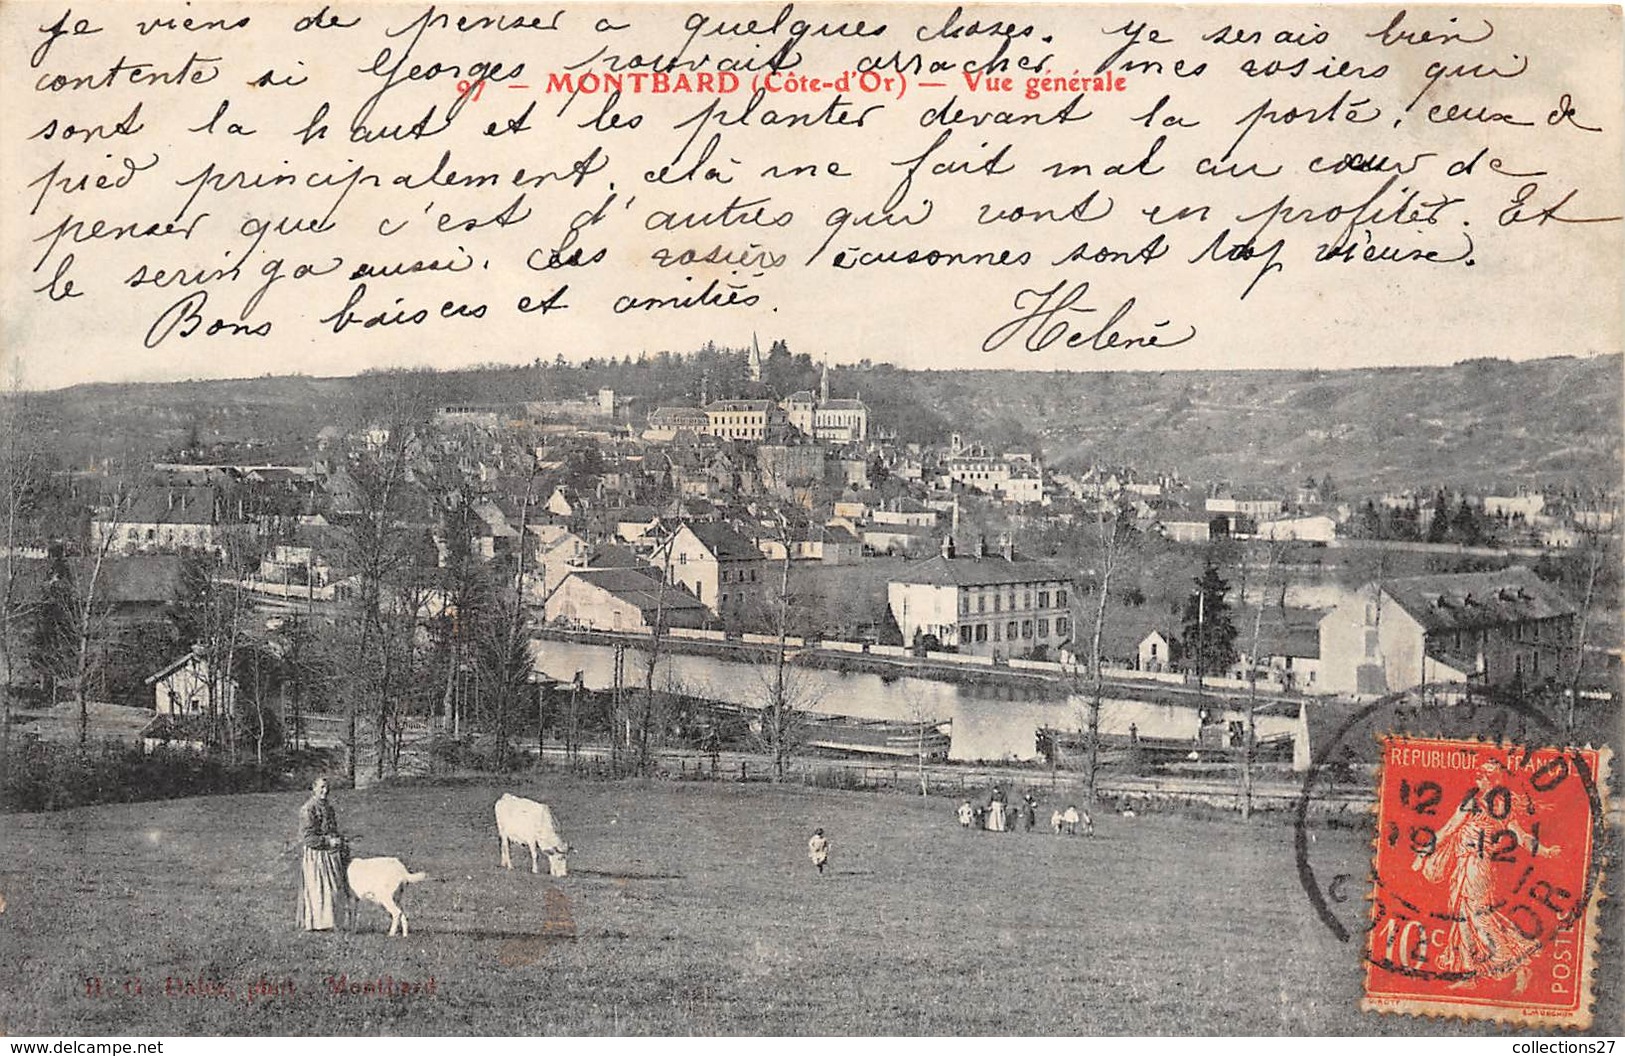 Je viens de penser a quelques choses. Je serais bien
contente si Georges pouvait arracher mes rosiers qui
97 — MONTBARD (Côte-d'Or) — Vue générale
sont la haut et les planter devant la porté, ceux de
pied principalement, celà me fait mal au cœur de
penser que c'est d'autres qui vont en profiter. Et
le seringa aussi. les rosiers écusonnes sont trop vieux.
Bons baisers et amitiés. Helené
REPUBLIQUE FRANÇAISE
12 40
19 12
COTE D'OR
10 c
POSTES
phot. Montbard
collections27